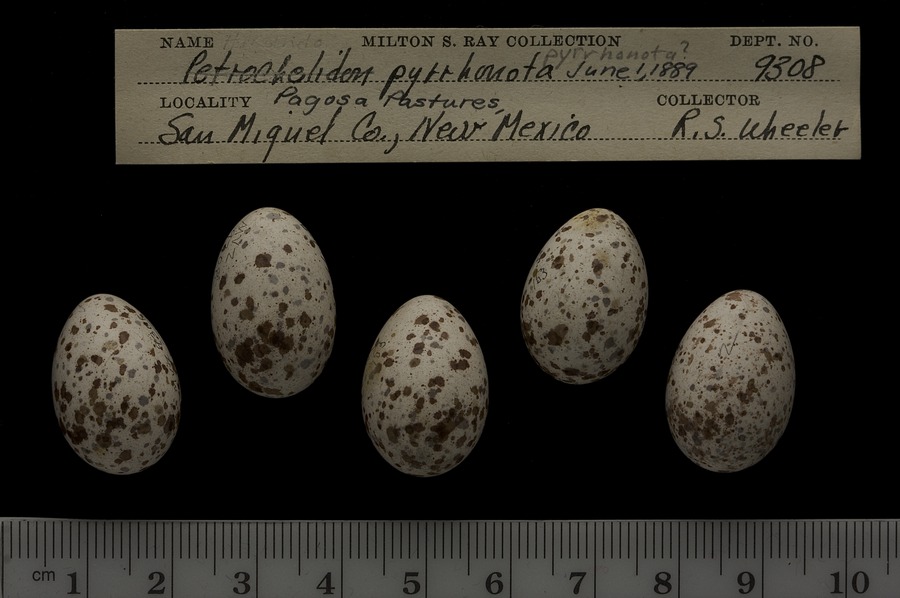 NAME MILTON S. RAY COLLECTION DEPT. NO.
pyrrhonota?
Petrochelidon pyrrhonota June 1, 1889 9308
LOCALITY Pagosa Pastures, COLLECTOR
San Miguel Co., New Mexico R.S. Wheeler
cm 1 2 3 4 5 6 7 8 9 10